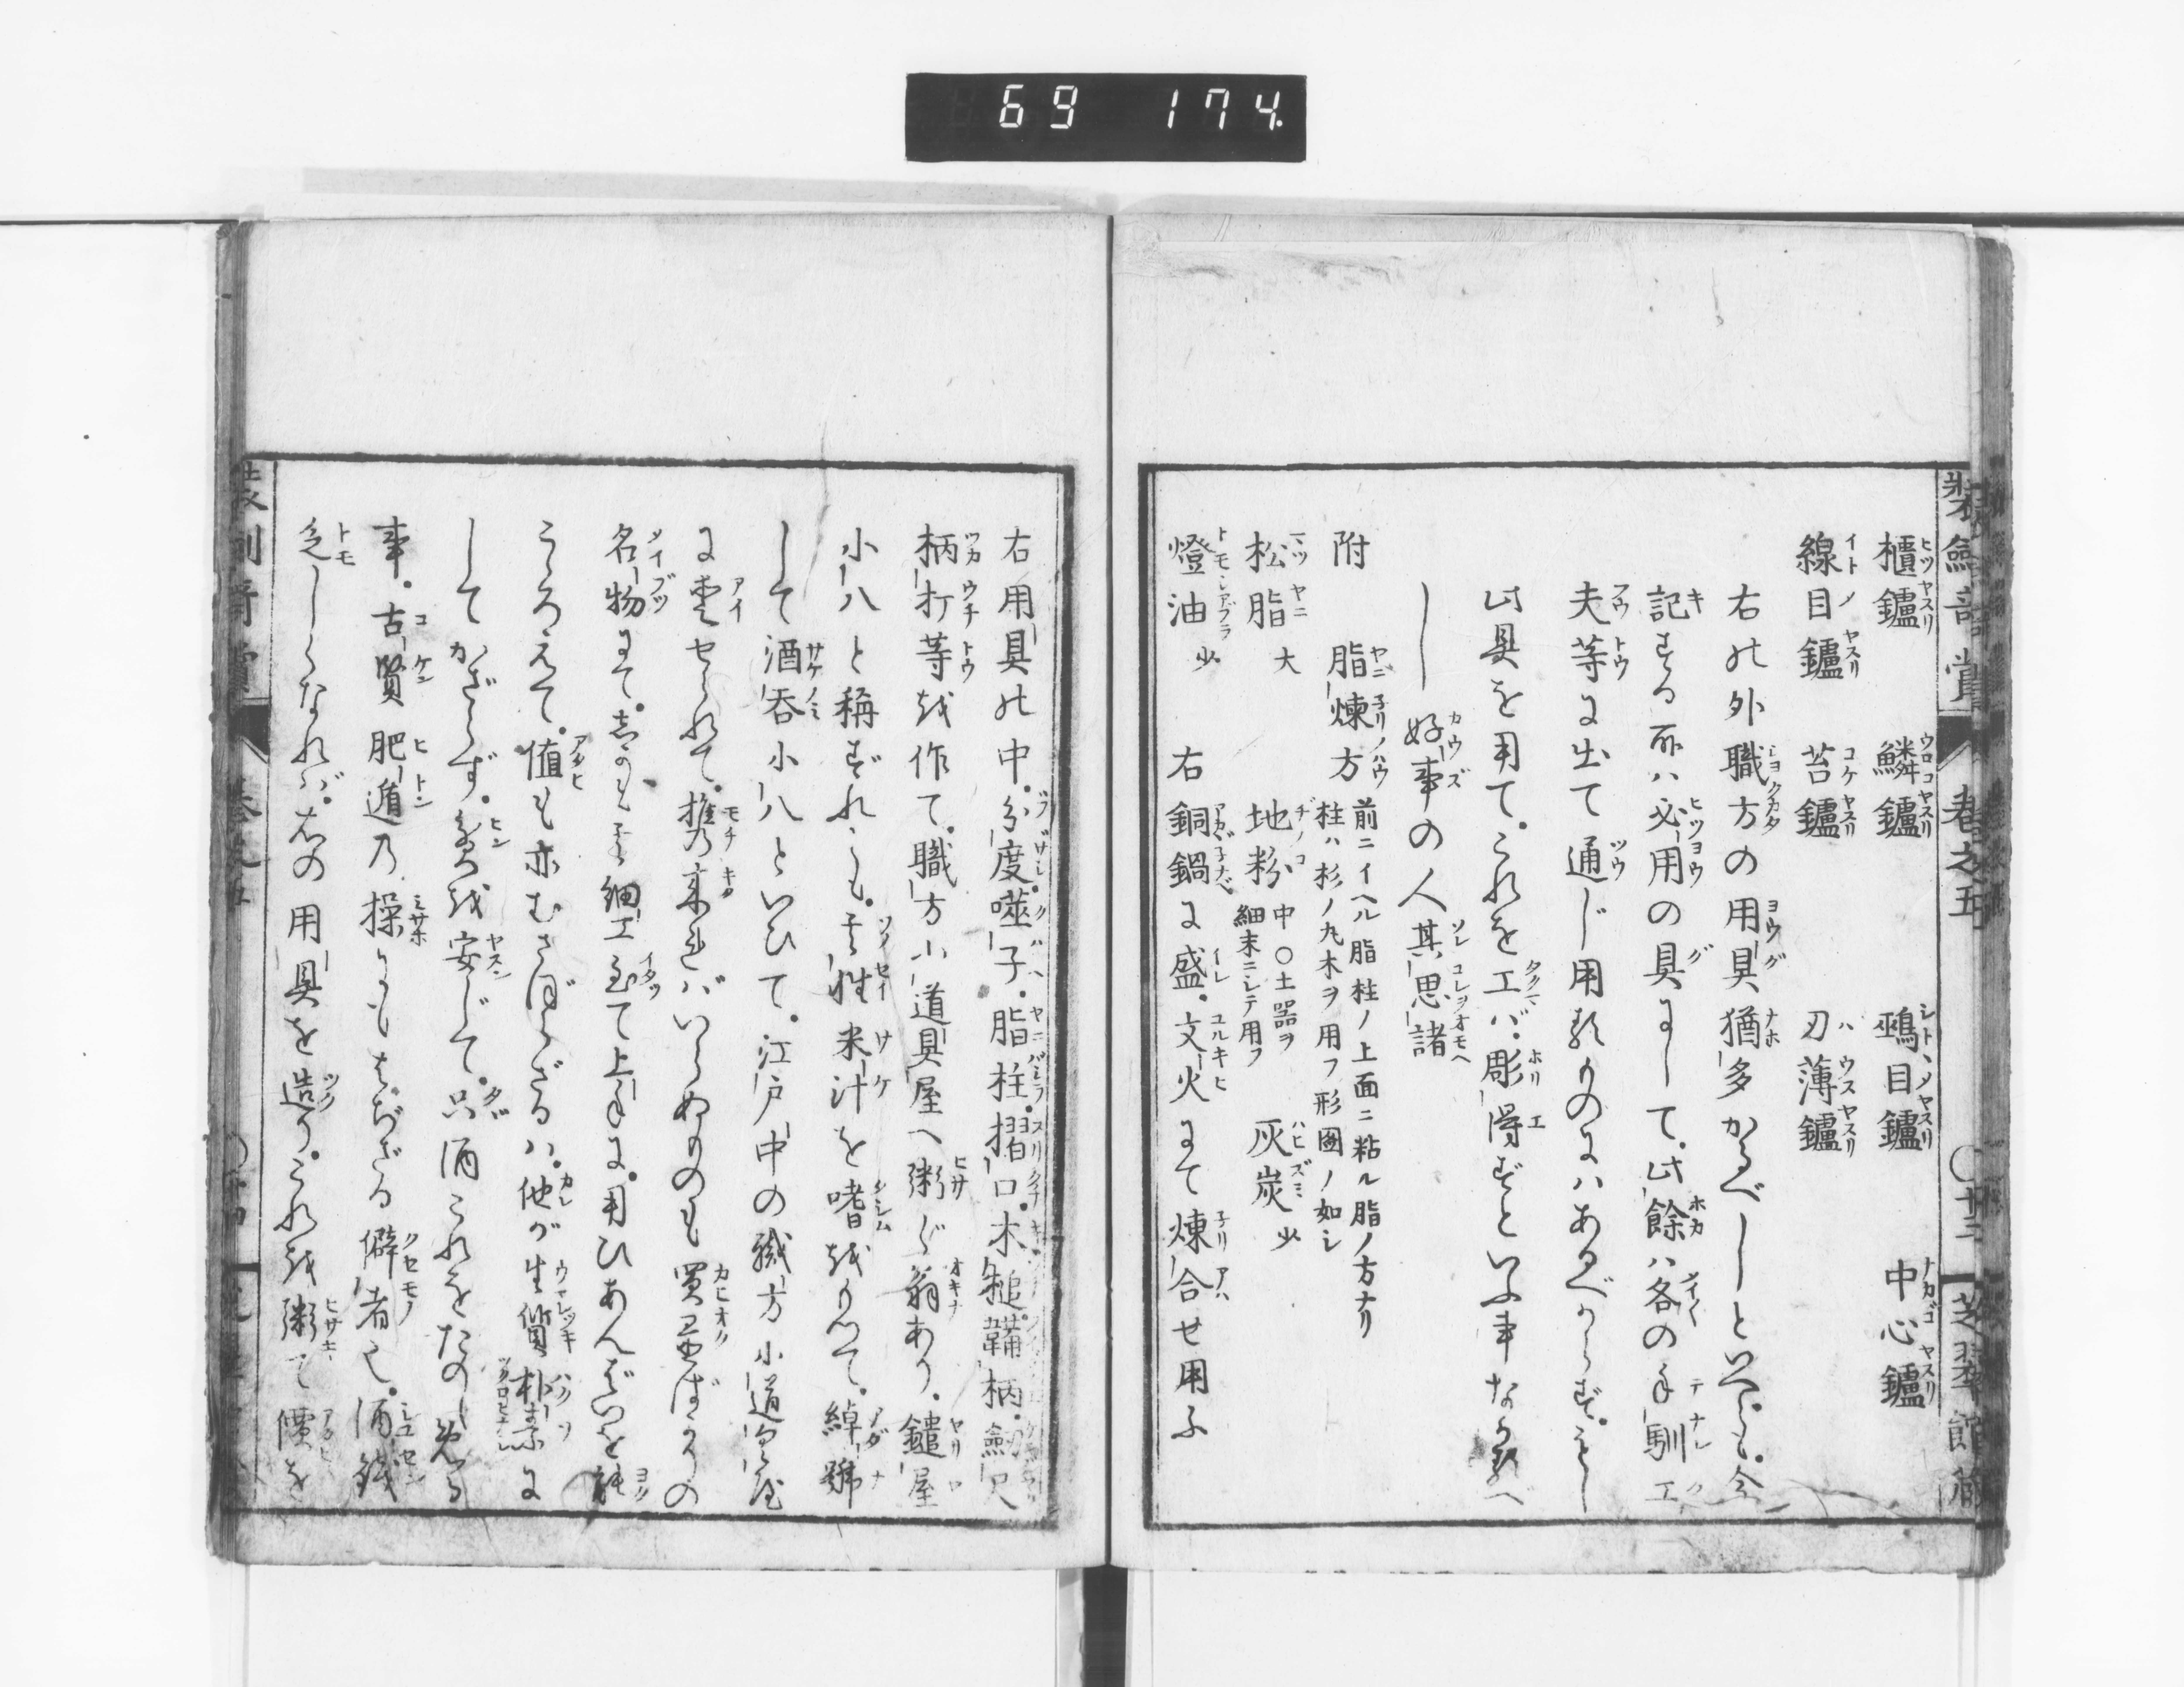 69 174.
装剣奇賞 巻之五 〇十三 芝翠館蔵
櫃鑢 鱗鑢 鵐目鑢 中心鑢
線目鑢 苔鑢 刃薄鑢
右の外職方の用具猶多かるべしといへども。今
記する所ハ必用の具にして。此餘ハ各の手馴工
夫等に出て通じ用るものにハあるべからず。もし
此具を用て。これを工バ。彫得ずといふ事なかるべ
し好事の人其思諸
附 脂煉方 前ニイヘル脂柱ノ上面ニ粘ル脂ノ方ナリ
柱ハ杉ノ丸木ヲ用フ形圖ノ如シ
松脂 大 地粉 中〇土器ヲ細末ニシテ用フ 灰炭 少
燈油 少 右銅鍋に盛。文火にて煉合せ用ふ
右用具の中。分度噬子。脂柱摺口。木鎚鞴柄。劔尺
柄打等を作て。職方小道具屋へ粥ぐ翁あり。鑓屋
小八と稱ずれども。其性米汁を嗜をもつて。綽號
して酒呑小八といひて。江戸中の職方小道具屋
に愛せられて。携来れバいらぬものも買置ばかりの
名物にて。しかも其細工至て上手に。用ひあんばいを能
こゝろえて。値も亦むさぼらざるハ。他が生質朴素に
してかざらず。貧を安じて。只酒これをたのしめる
事。古賢肥遁乃操にもはぢざる僻者也。酒銭
乏しくなれバ。右の用具を造り。これを粥て價を